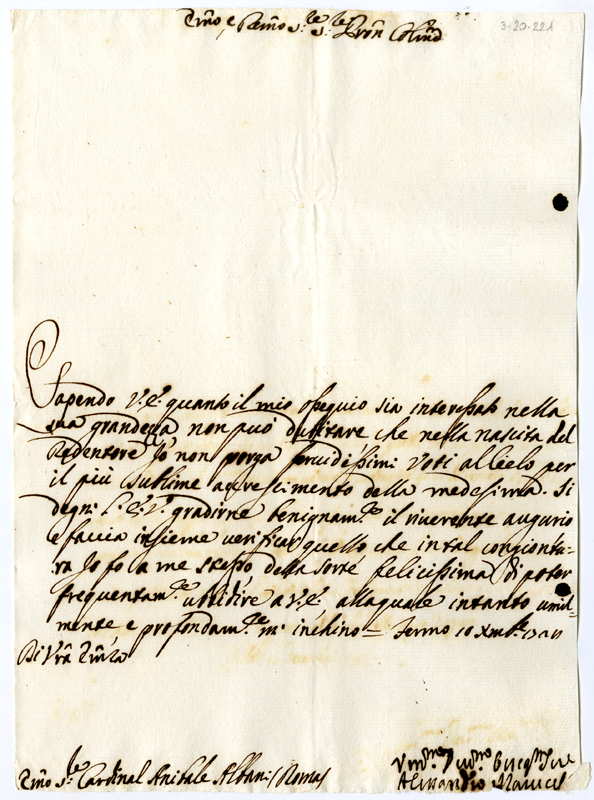 3-20-221
Emo e Rmo S.re S.re Pron Colmo
Sapendo V.E. quanto il mio ossequio sia interessato nella
sua grandezza non può dubitare che nella nascita del
Redentore Io non porga fervidissimi voti al Cielo per
il più sublime accrescimento della medesima. Si
degni l'E.V. gradirne benignam.te il riverente augurio
e faccia insieme verificar quello che in tal congiontu=
ra Io fo a me stesso della sorte felicissima di poter
frequentam.te ubbidire a V.E., alla quale intanto umil=
mente e profondam.te m'inchino= Fermo 10 Xmb.re
Di Vra Emza
Emo S.r Cardinal Anibale Albani / Roma /
Alessandro